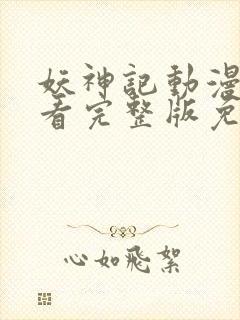 妖神記動漫
看完整版免
心如飛絮